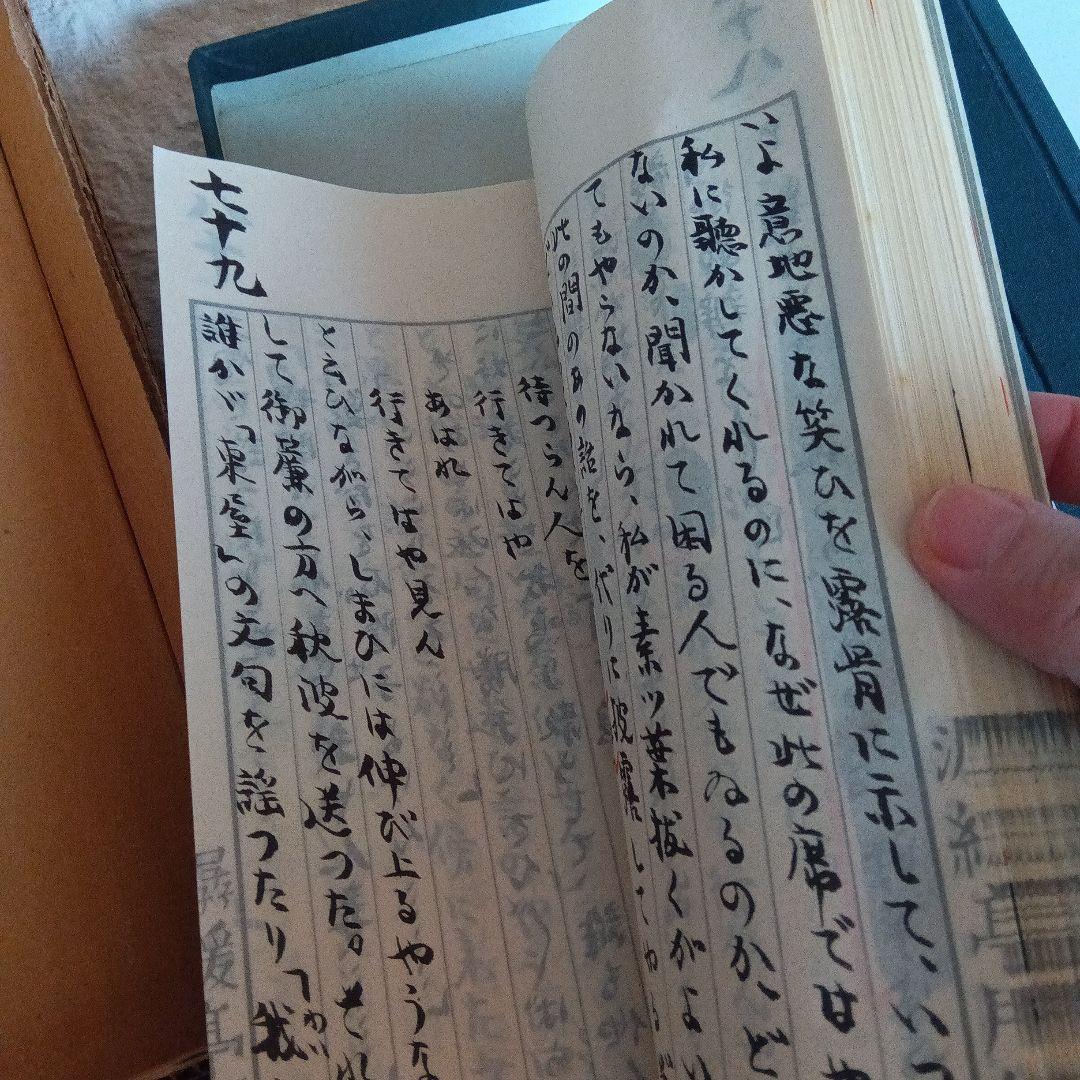 いよ意地悪な笑ひを露骨に示して、いつ
私に聽かしてくれるのに、なぜ此の席では
ないのか、聞かれて困る人でもゐるのか、ど
てもやらないなら、私が素ツ葉拔くがよい
此の間のあの話を、代りに披露して
七十九
待つらん人を
行きてはや
あはれ
行きてはや見ん
と云ひながら、しまひには伸び上るやうな
して御簾の方へ秋波を送つた。それ
誰かゞ「東屋」の文句を謡つたり「我